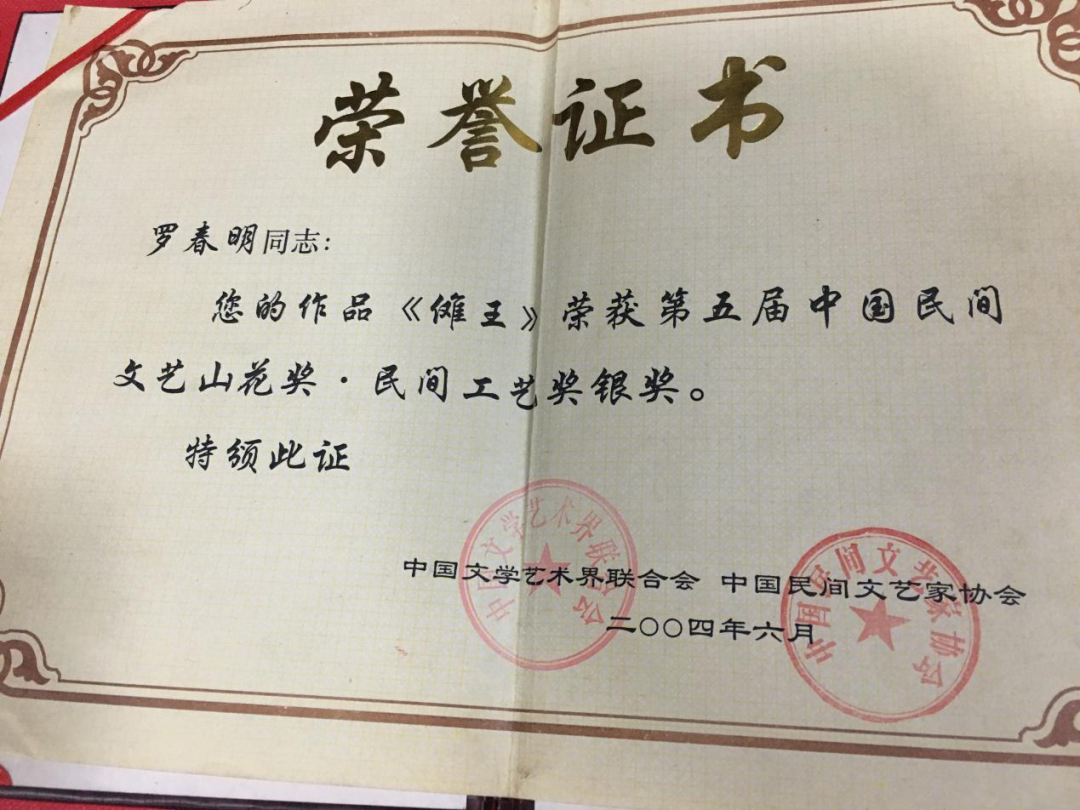 荣誉证书
罗春明同志：
您的作品《傩王》荣获第五届中国民间
文艺山花奖·民间工艺奖银奖。
特颁此证
中国文学艺术界联合会 中国民间文艺家协会
二〇〇四年六月
中国文学艺术界联合会
中国民间文艺家协会